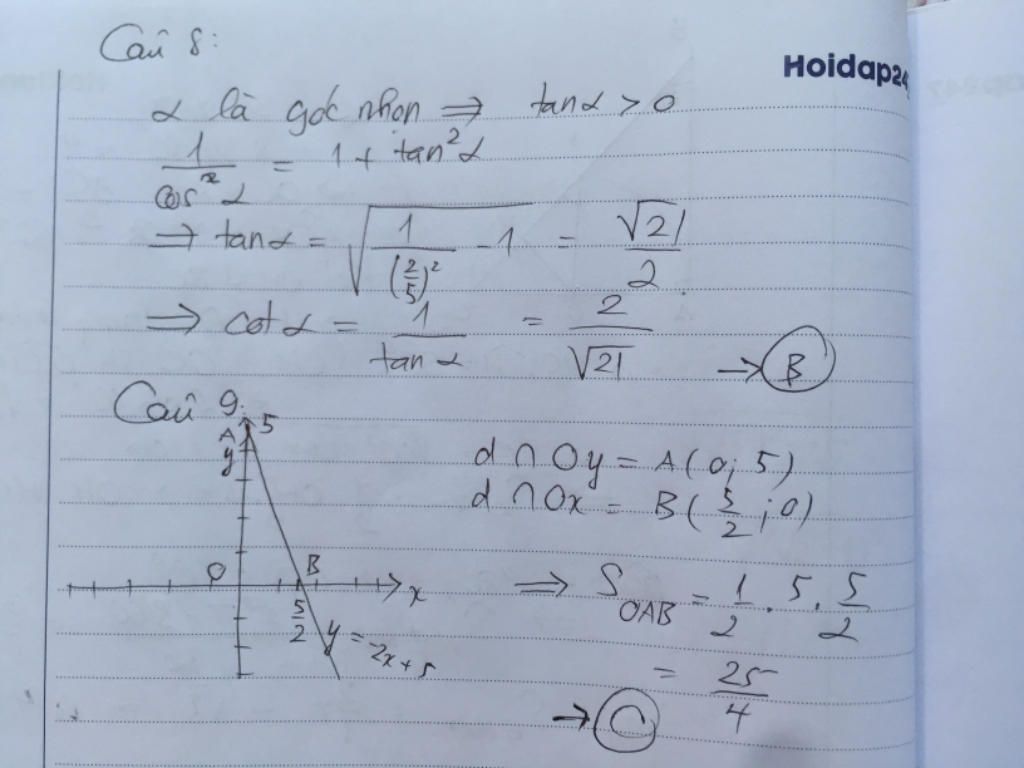 Câu 8:
Hoidap24
α là góc nhọn ⇒ tanα > 0
1/cos²α = 1 + tan²α
⇒ tanα = √(1/(2/5)² - 1) = √21/2
⇒ cotα = 1/tanα = 2/√21
→ B
Câu 9.
A 5
y
d ∩ Oy = A(0; 5)
d ∩ Ox = B(5/2; 0)
O B x
5/2
y = -2x+5
⇒ S OAB = 1/2 . 5 . 5/2
= 25/4
→ C